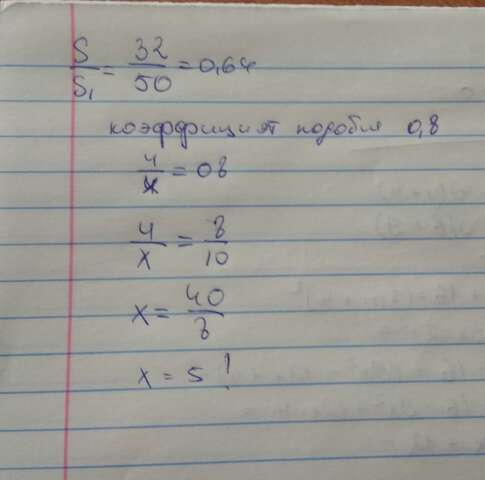 S/S₁ = 32/50 = 0,64
коэффициэт подобия 0,8
4/x = 08
4/x = 8/10
x = 40/8
x = 5!